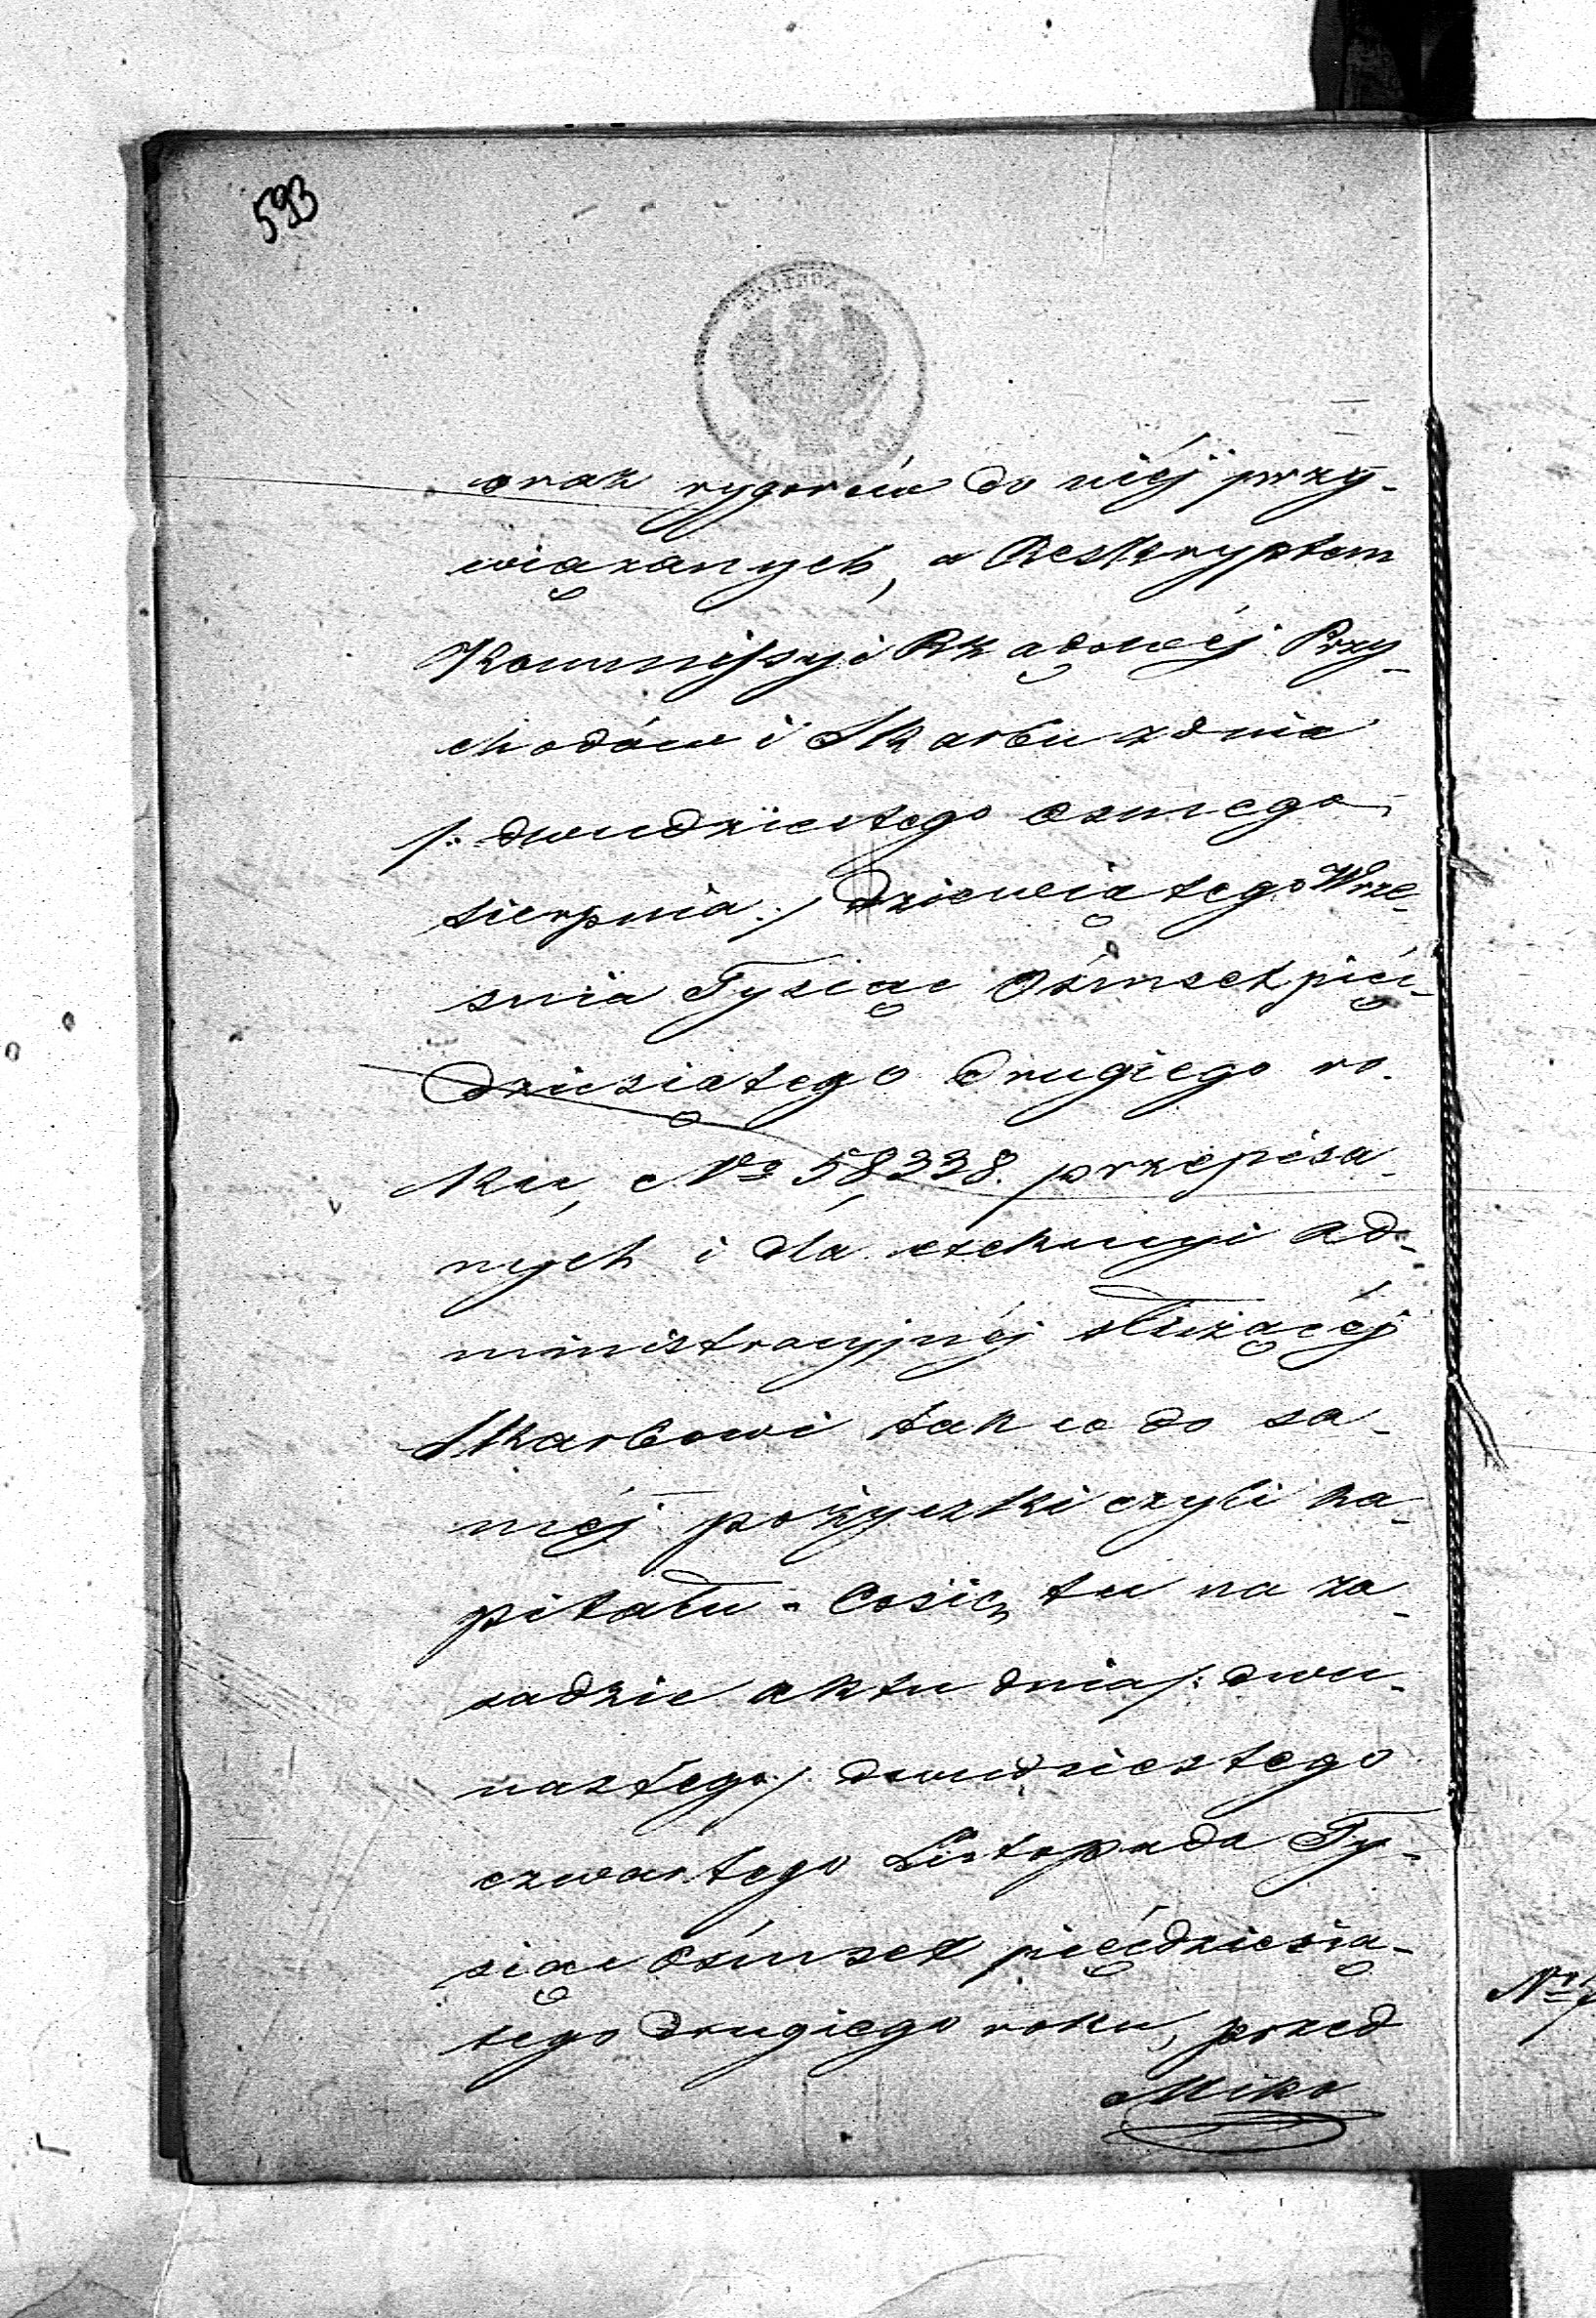 593
oraz rygorów do niéj przy-
wiązanych, a Reskryptem
Kommissyi Rządowéj Przy-
chodów i Skarbu z dnia
/: dwudziestego osmego
sierpnia :/ dziewiątego Wrze-
snia Tysiąc Ośmset pięć-
dziesiątego drugiego ro-
ku, No 58,338. przepisa-
nych i dla exekucyi ad-
ministracyjnéj służącéj
Skarbowi tak co do sa-
méj pożyczki czyli ka-
pitału. Coście tu na za-
sadzie aktu dnia /: dwu-
nastego :/ dwudziestego
czwartego Listopada Ty-
siąc Ośmset pięćdziesią-
tego drugiego roku, przed
Miko
No